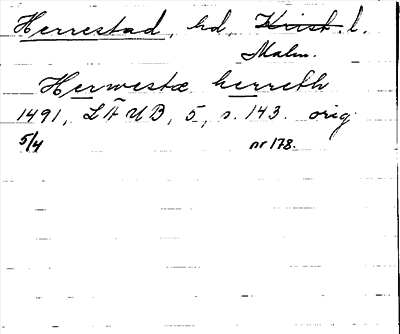 Herrestad, hd, Krist. l.
Malm.
Herwestæ herreth
1491, LÄUB, 5, s. 143. orig
5/4 nr 178.